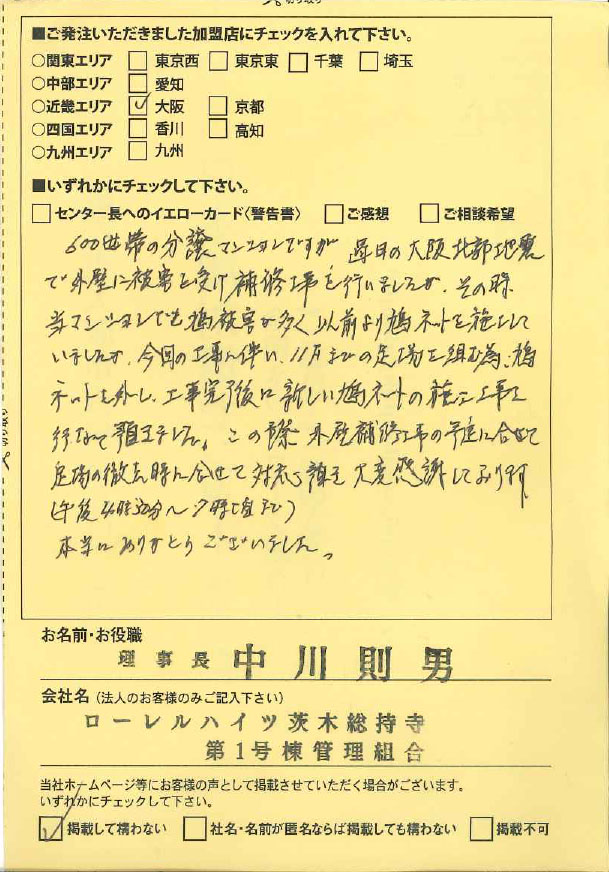 ■ご発注いただきました加盟店にチェックを入れて下さい。
○関東エリア □ 東京西 □ 東京東 □ 千葉 □ 埼玉
○中部エリア □ 愛知
○近畿エリア ☑ 大阪 □ 京都
○四国エリア □ 香川 □ 高知
○九州エリア □ 九州
■いずれかにチェックして下さい。
□ センター長へのイエローカード〈警告書〉 □ ご感想 □ ご相談希望
600世帯の分譲マンションですが 過日の大阪北部地震
で外壁に被害を受け補修工事を行いましたが、その際
当マンションでも鳩被害が多く以前より鳩ネットを施工して
いましたが、今回の工事に伴い、11月までの足場を組む為、鳩
ネットを外し、工事完了後に新しい鳩ネットの施工工事を
行なって頂きました。この際 外壁補修工事の予定に合せて
足場の徹去時に合せて対応頂き大変感謝しております
(午後 分〜7時頃まで)
本当にありがとうございました。
お名前・お役職
理事長 中川則男
会社名(法人のお客様のみご記入下さい)
ローレルハイツ茨木総持寺
第1号棟管理組合
当社ホームページ等にお客様の声として掲載させていただく場合がございます。
いずれかにチェックして下さい。
☑ 掲載して構わない □ 社名・名前が匿名ならば掲載しても構わない □ 掲載不可